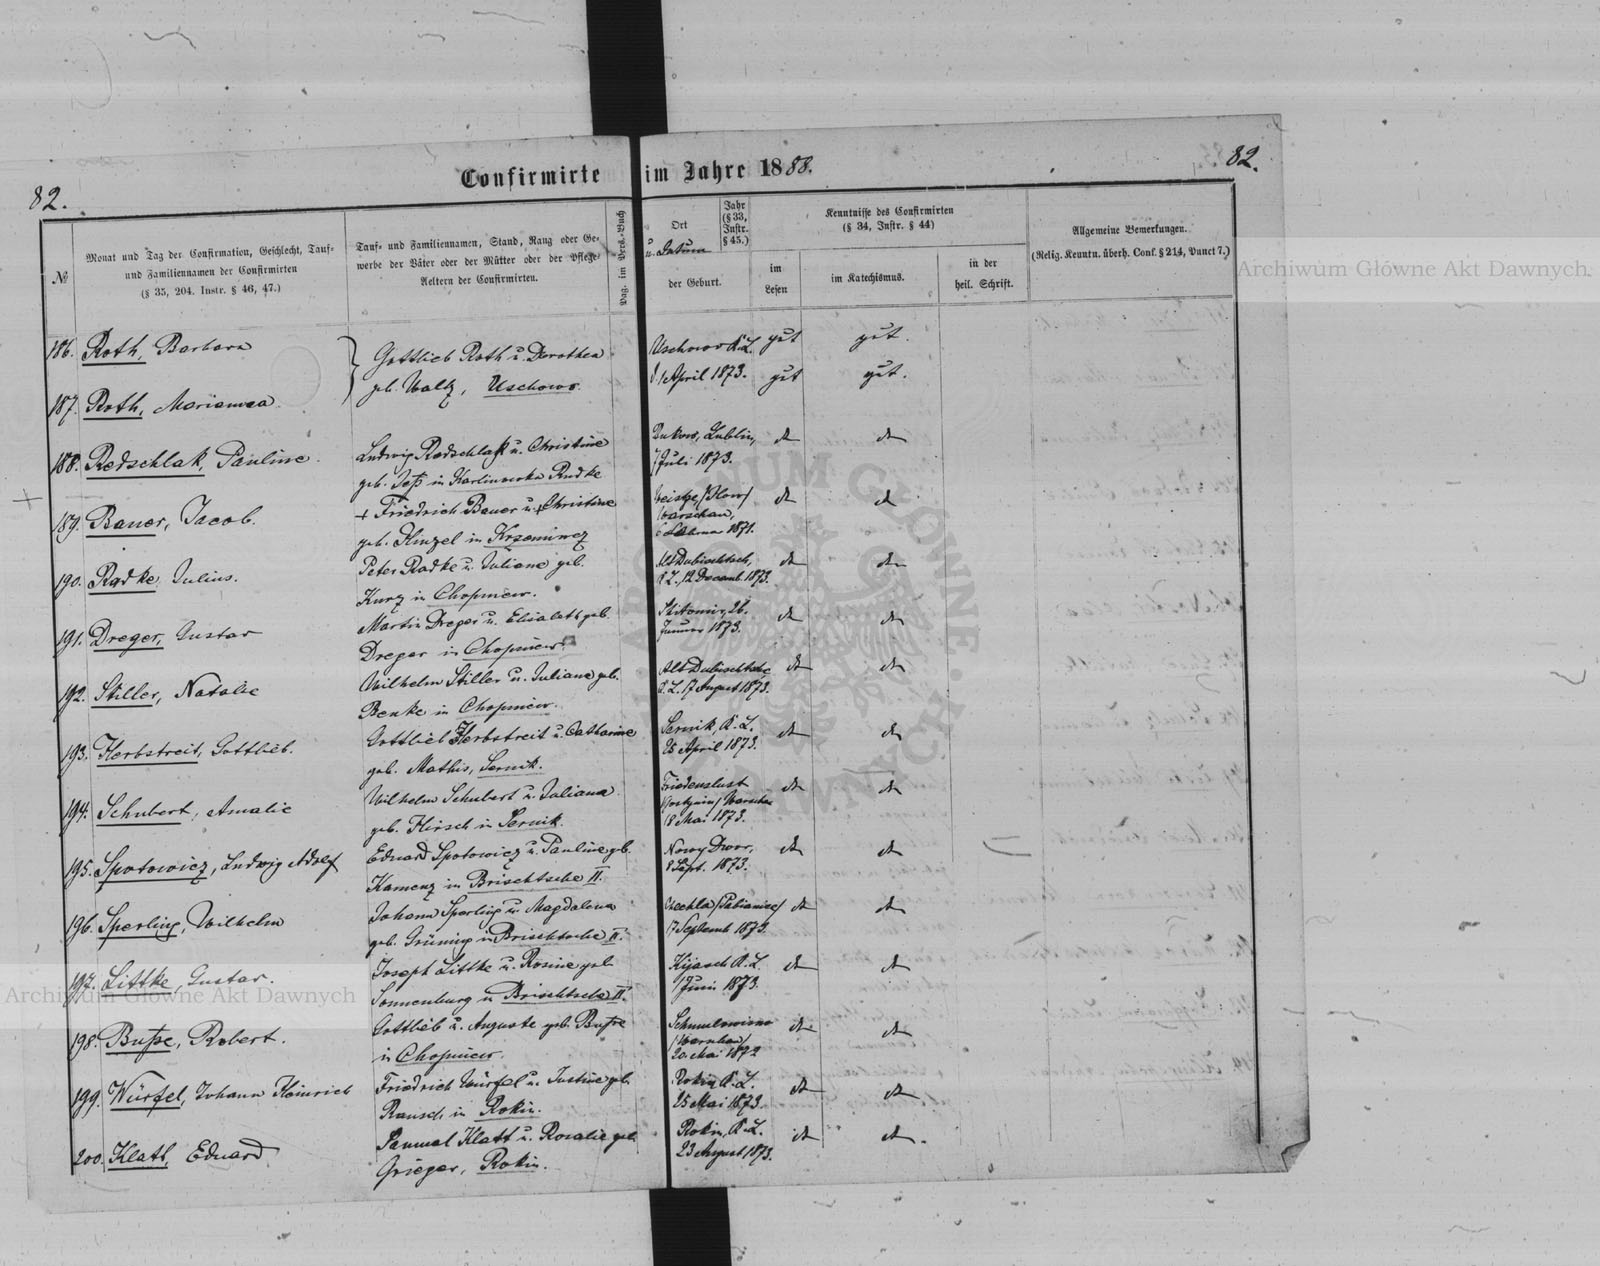 82.
Confirmirte im Jahre 1888.
82.
№
Monat und Tag der Confirmation, Geschlecht, Tauf-
und Familiennamen der Confirmirten
(§ 35, 204. Instr. § 46, 47.)
Tauf- und Familiennamen, Stand, Rang oder Ge-
werbe der Väter oder der Mütter oder der Pflege-
Aeltern der Confirmirten.
Pag. im Pers.-Buch
Ort
u. Datum
der Geburt.
Jahr
(§ 33,
Instr.
§ 45.)
Kenntnisse des Confirmirten
(§ 34, Instr. § 44)
im
Lesen
im Katechismus.
in der
heil. Schrift.
Allgemeine Bemerkungen.
(Relig. Kenntn. überh. Conf. § 214, Punct 7.)
Archiwum Główne Akt Dawnych.
186. Roth, Barbara
Gottlieb Roth u. Dorothea
Uschower K. L. gut gut.
geb. Waltz, Uschower.
1 April 1873. gut gut.
187. Roth, Marianna
188. Redschlak, Pauline
Ludwig Redschlak u. Christine
Bukow, Lublin, do do
geb. Joß in Karlinuwka Rudke
7 Juli 1873.
189. Bauer, Jacob.
+ Friedrich Bauer u. + Christine
/Ilow/ do do
geb. Kinzel in Krzeminiez
Warschau,
1871.
190. Radke, Julius.
Peter Radke u. Juliane geb.
Alt Dubischtsch, do do
Kurz in Chopniew.
K. L. 12 Decemb. 1873.
191. Dreger, Gustav
Martin Dreger u. Elisabeth geb.
Shitomir, 26. do do
Dreger in Chopniew.
Januar 1873.
192. Stiller, Natalie
Wilhelm Stiller u. Juliane geb.
Alt Dubischtsche do do
Benke in Chopniew.
K. L. 17 August 1873.
193. Herbstreit, Gottlieb.
Gottlieb Herbstreit u. Catharine
Sernik K. L. do do
geb. Mathis, Sernik.
25 April 1873.
194. Schubert, Amalie
Wilhelm Schubert u. Juliana
Friedenslust do do
geb. Hirsch in Sernik.
/Warschau
18 Mai 1873.
195. Spotowicz, Ludwig Adolf
Eduard Spotowicz u. Pauline gb.
Nowy Dwor, do do
Kamenz in Brischtsche II.
8 Sept. 1873.
196. Sperling, Wilhelm
Johann Sperling u. Magdalena
Chechla /Pabianice/ do do
geb. Grüning in Brischtsche II.
17 Septemb 1873.
197. Littke, Gustav.
Joseph Littke u. Rosine geb.
Kijasch K. L. do do
Sonnenburg in Brischtsche II.
1 Juni 1873.
Archiwum Główne Akt Dawnych
198. Buße, Robert.
Gottlieb u. Auguste geb. Buße
do do
in Chopniew.
/Warschau/
20. Mai 1872
199. Würfel, Johann Heinrich
Friedrich Würfel u. Justine geb.
Rokin K. L. do do
Rausch in Rokin.
25 Mai 1873.
200. Klatt, Eduard
Samuel Klatt u. Rosalie geb.
Rokin, K. L. do do.
Grieger, Rokin.
23 August 1873.
ARCHIWUM GŁÓWNE AKT DAWNYCH